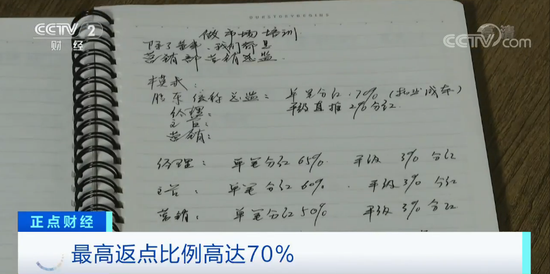 CCTV 2
财经
CCTV.com
做市场培训
除了董事,我们都是
营销部营销总监
模式
股东经称总监: 单笔分红.70%
平级直推2%分红
经理:
主管:
营销:
经理: 单笔分红65% 平级 3% 分红
主管: 单笔分红60% 平级 3% 分红
营销: 单笔分红50% 平级 3% 分红
正点财经
最高返点比例高达70%